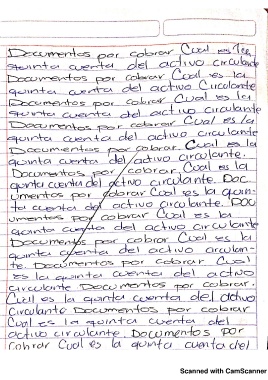 Documentos por cobrar Cual es la
quinta cuenta del activo circulante
Documentos por cobrar Cual es la
quinta cuenta del activo Circulante
Documentos por cobrar Cual es la
quinta cuenta del activo circulante
Documentos por cobrar Cual es la
quinta cuenta del activo circulante
Documentos por cobrar. Cual es la
quinta cuenta del activo circulante.
Documentos por cobrar, Cual es la
quinta cuenta del activo circulante. Doc
umentos por cobrar Cual es la quin-
ta cuenta del activo circulante. Doc
umentos por cobrar Cual es la
quinta cuenta del activo circulante
Documentos por cobrar Cual es la
quinta cuenta del activo circulan-
te. Documentos por cobrar Cual
es la quinta cuenta del activo
circulante Documentos por cobrar.
Cual es la quinta cuenta del activo
Circulante Documentos por cobrar
Cual es la quinta cuenta del
activo circulante. Documentos Por
Cobrar Cual es la quinta cuenta del
Scanned with CamScanner